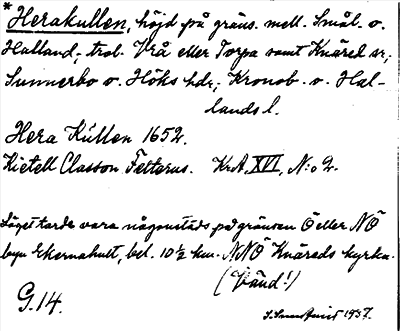 * Herakullen, höjd på gräns. mell. Smål. o.
Halland; trol. Vrå eller Torpa samt Knäred sr;
Sunnerbo o. Höks hdr; Kronob. o. Hal-
lands l.
Hera Kullen 1652.
Kietell Classon Felterus. KrA, XVI, N:o 2.
Läget torde vara någonstäds på gränsen Ö eller NÖ
byn Ekernahult, bel. 10½ km. NNÖ Knäreds kyrka.
(Vänd!)
G.14.
1937.